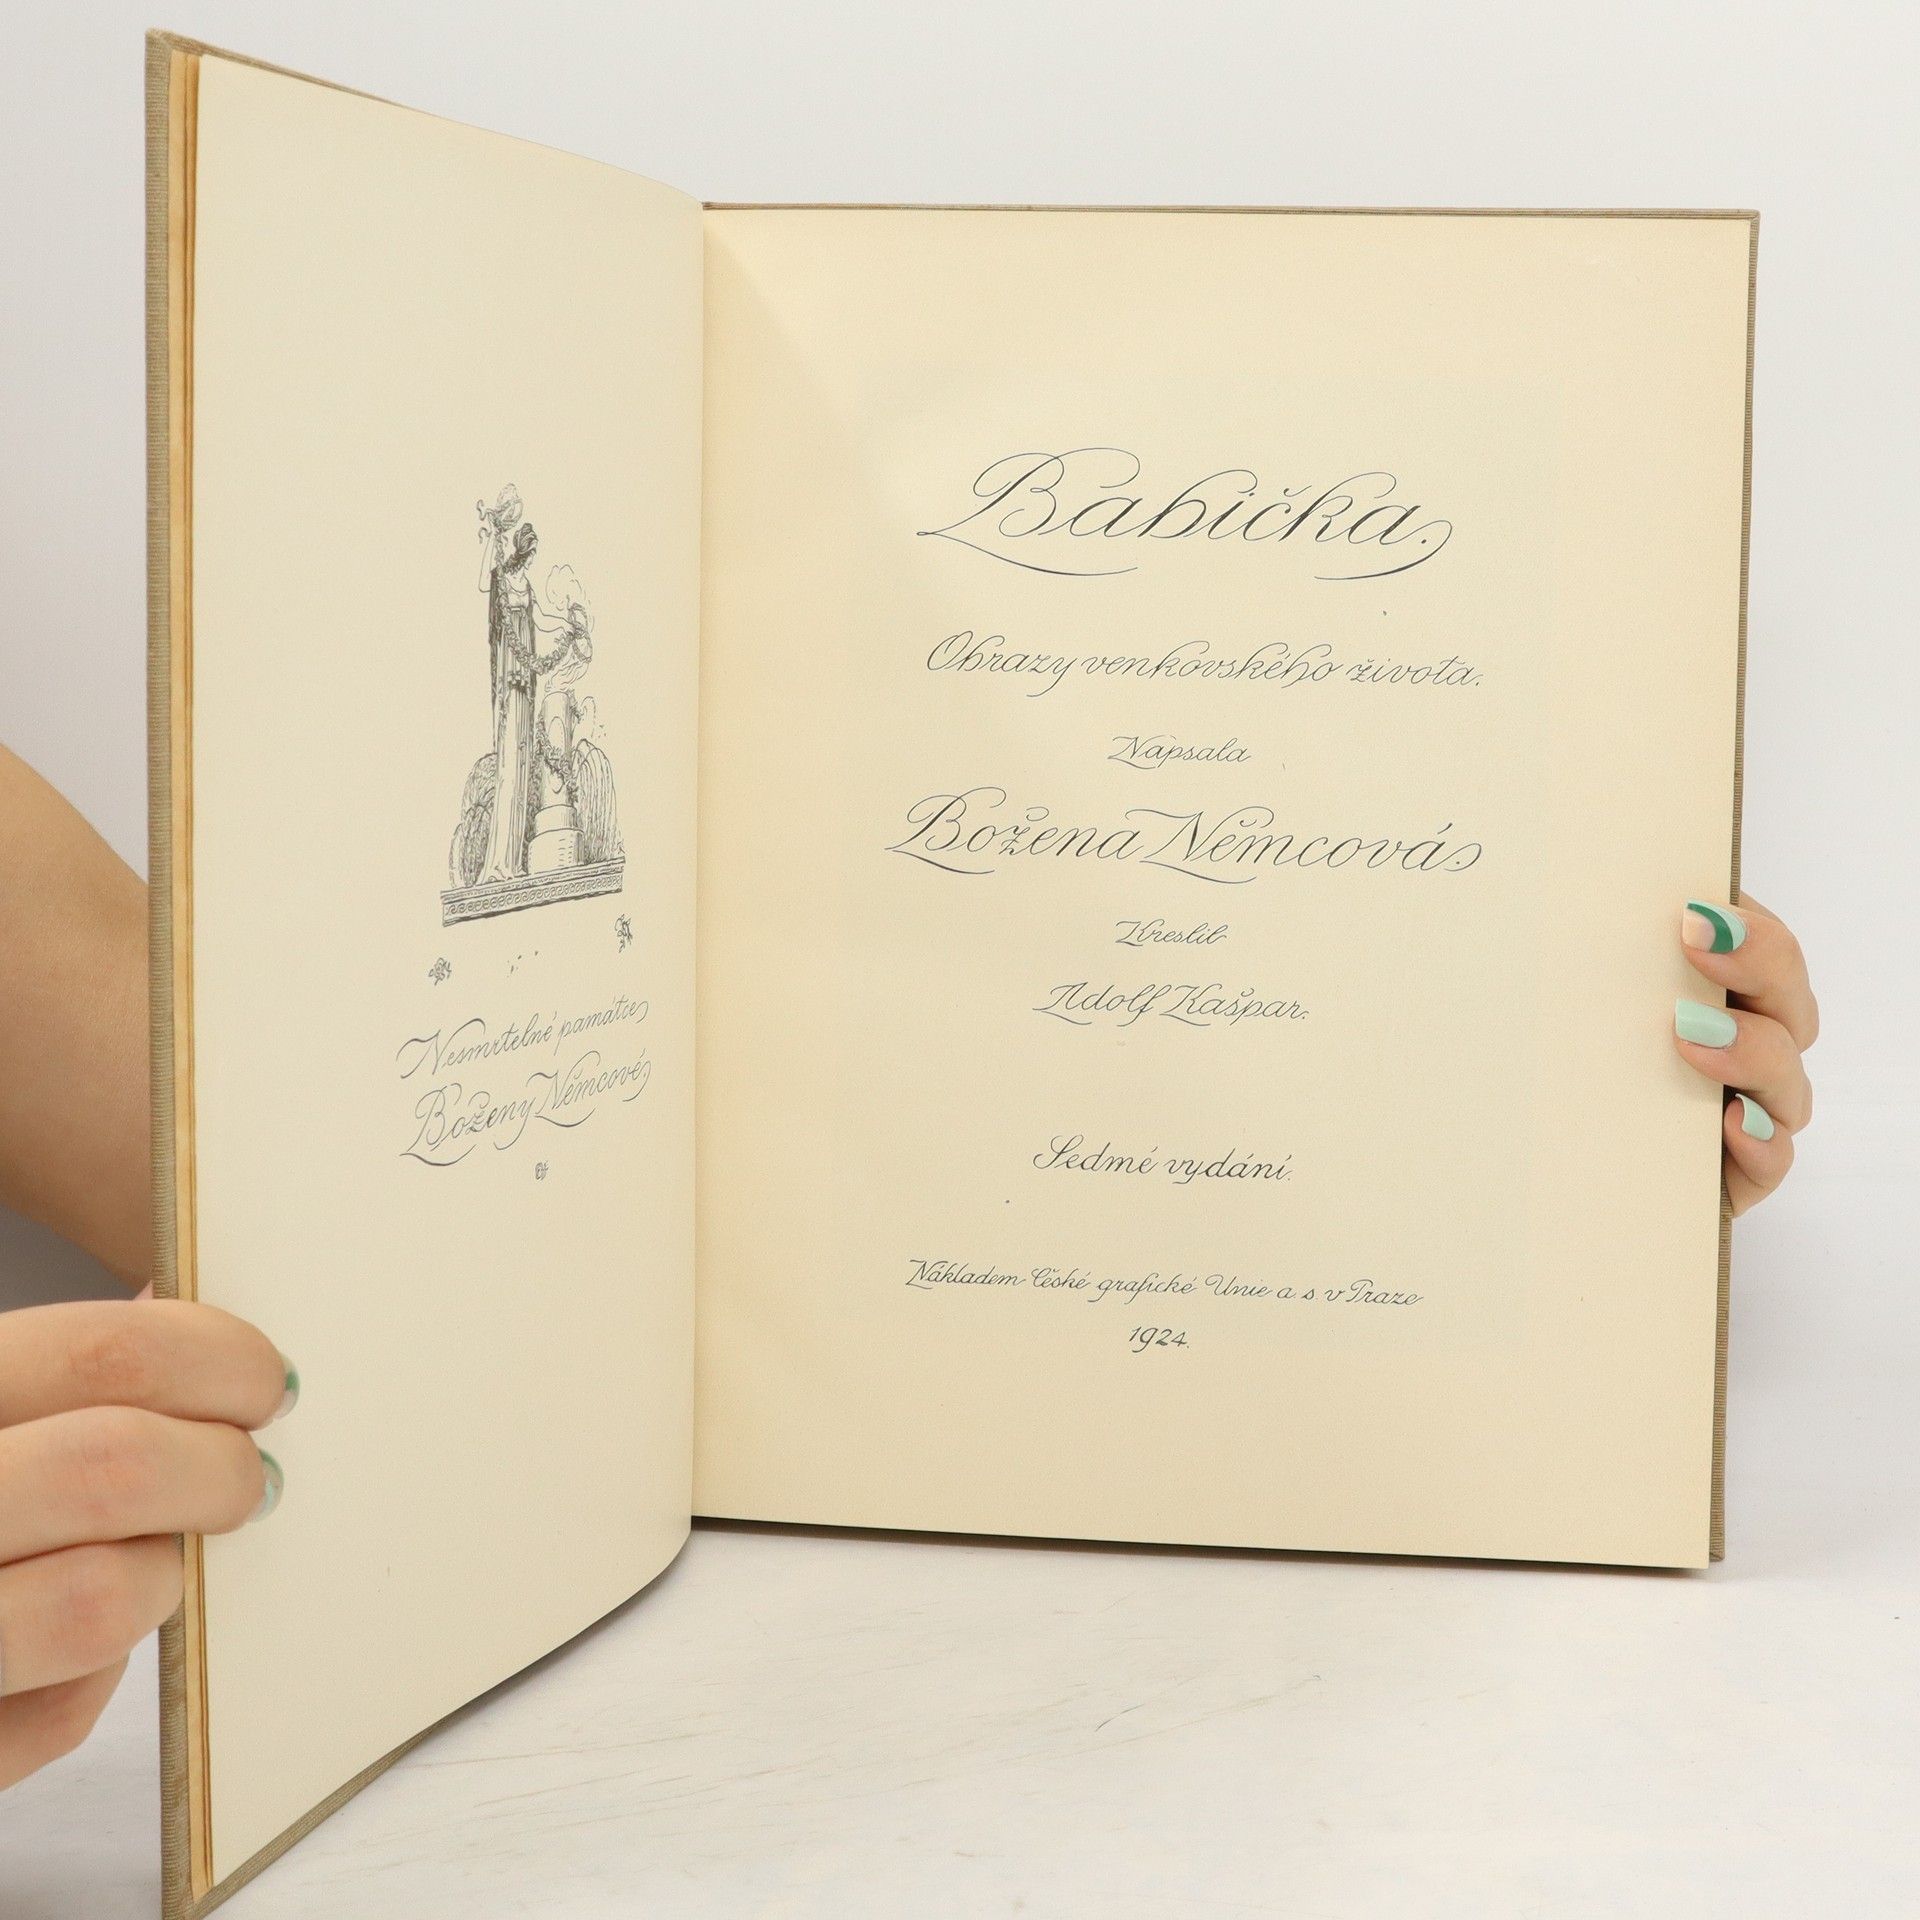 Nesmrtelné památce
Boženy Němcové
Babička.
Obrazy venkovského života.
Napsala
Božena Němcová.
Kreslil
Adolf Kašpar.
Sedmé vydání.
Nákladem České grafické Unie a. s. v Praze
1924.